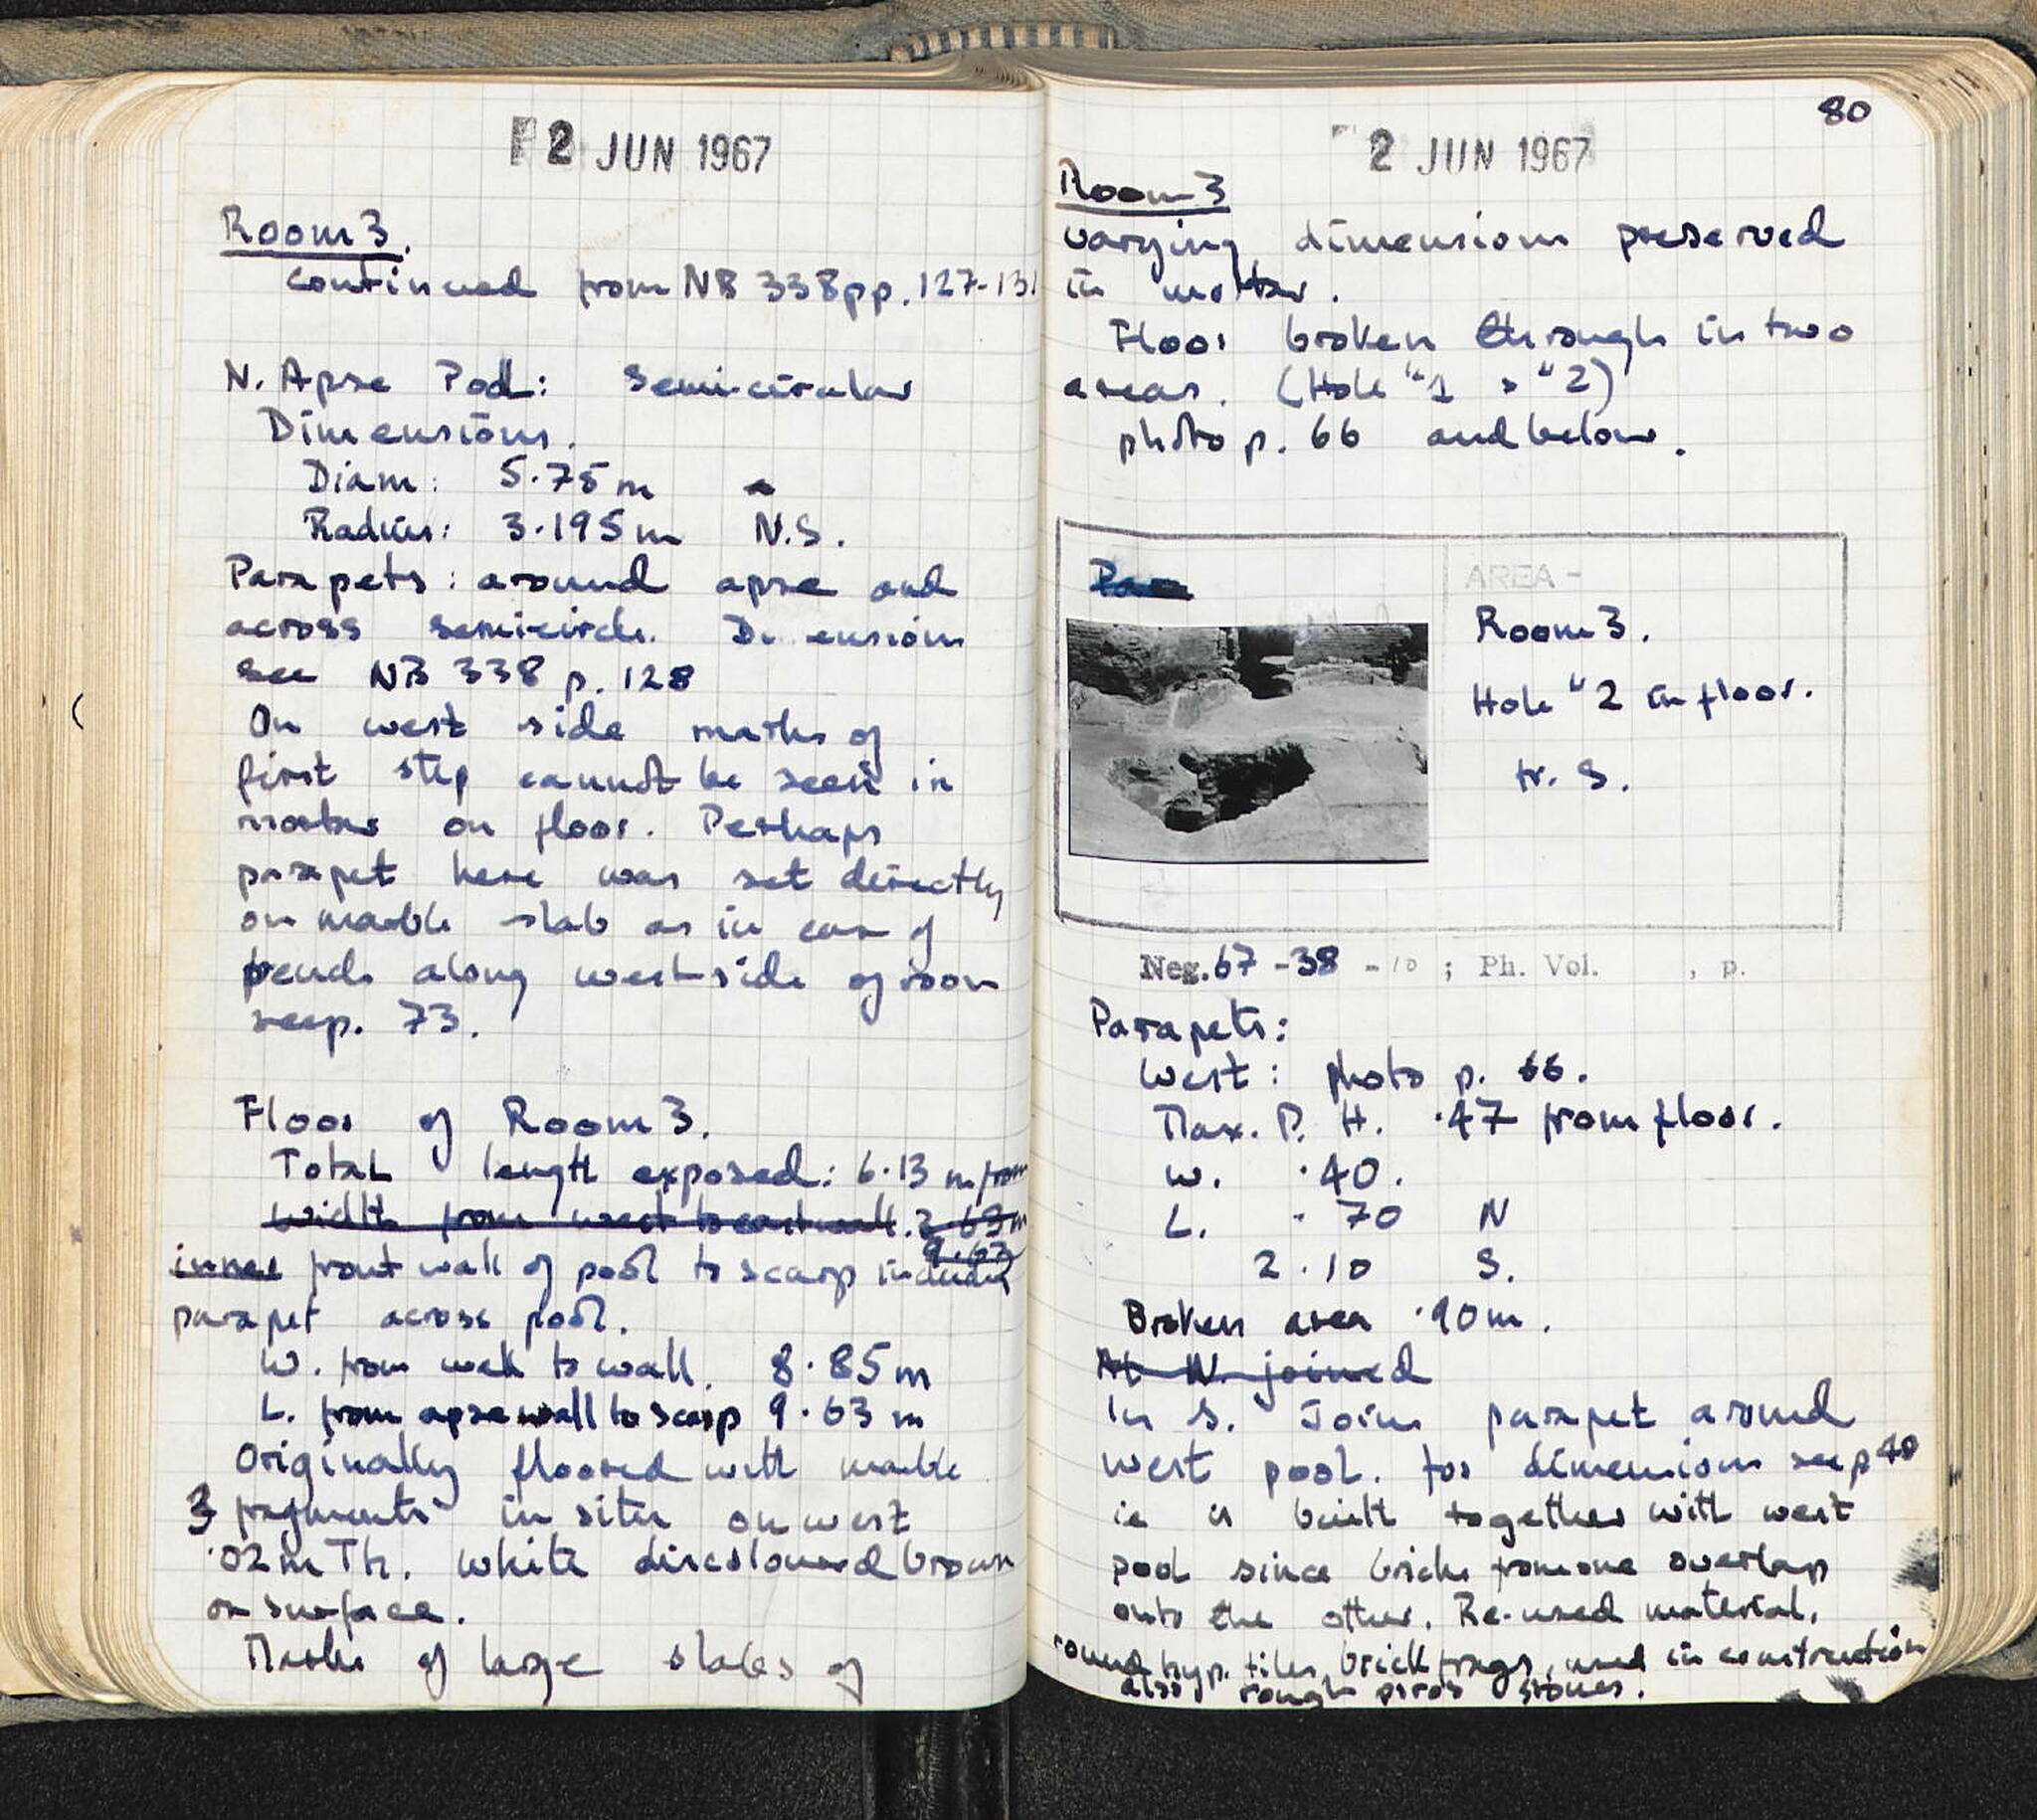 2 JUN 1967
Room 3.
continued from NB 338 pp. 127-131
N. Apse Pool: Semicircular
Dimensions.
Diam: 5.75 m
Radius: 3.195 m N.S.
Parapets: around apse and
across semicircle. Di ensions
see NB 338 p. 128
On west side marks of
first step cannot be seen in
mortar on floor. Perhaps
parapet here was set directly
on marble slab as in case of
bench along west side of room
see p. 73.
Floor of Room 3.
Total length exposed: 6.13 m from
Width from west to east wall.
9.63
inner front wall of pool to scarp including
parapet across pool.
W. from wall to wall. 8.85 m
L. from apse wall to scarp 9.63 m
Originally floored with marble
3 fragments in situ on west
.02 m Th. White discoloured brown
on surface.
Marks of large slabs of
80
2 JUN 1967
Room 3
varying dimensions preserved
in mortar.
Floor broken through in two
areas. (Hole "1 > "2)
photo p. 66 and below.
AREA -
Room 3.
Hole "2 in floor.
fr. S.
Neg. 67 - 38 - 10 ; Ph. Vol. , p.
Parapets:
West: photo p. 66.
Max. P. H. .47 from floor.
W. .40.
L. .70 N
2.10 S.
Broken area .90 m.
At N. joined
In S. Joins parapet around
west pool. for dimensions see p 40
ie is built together with west
pool since bricks from one overlap
onto the other. Re-used material,
round hyp. tiles, brick frags, used in construction
also rough poros stones.